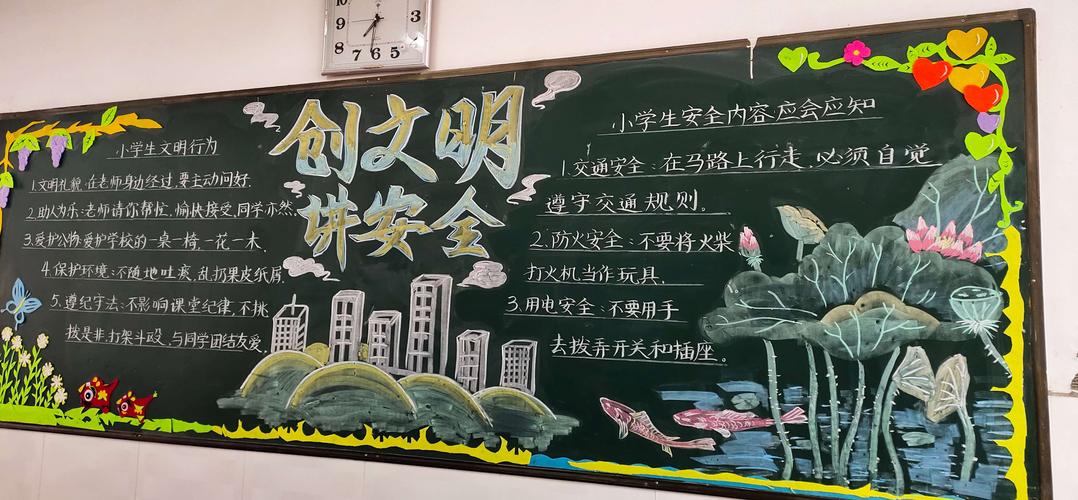 10
3
9
8
7
6
5
创文明
讲安全
小学生文明行为
1.文明礼貌:在老师身边经过,要主动问好.
2.助人为乐:老师请你帮忙,愉快接受,同学亦然.
3.爱护公物:爱护学校的一桌一椅,一花一木.
4.保护环境:不随地吐痰,乱扔果皮纸屑.
5.遵纪守法:不影响课堂纪律,不挑
拨是非,打架斗殴,与同学团结友爱.
小学生安全内容:应会应知
1.交通安全:在马路上行走,必须自觉
遵守交通规则。
2.防火安全:不要将火柴
打火机当作玩具.
3.用电安全:不要用手
去拨弄开关和插座。